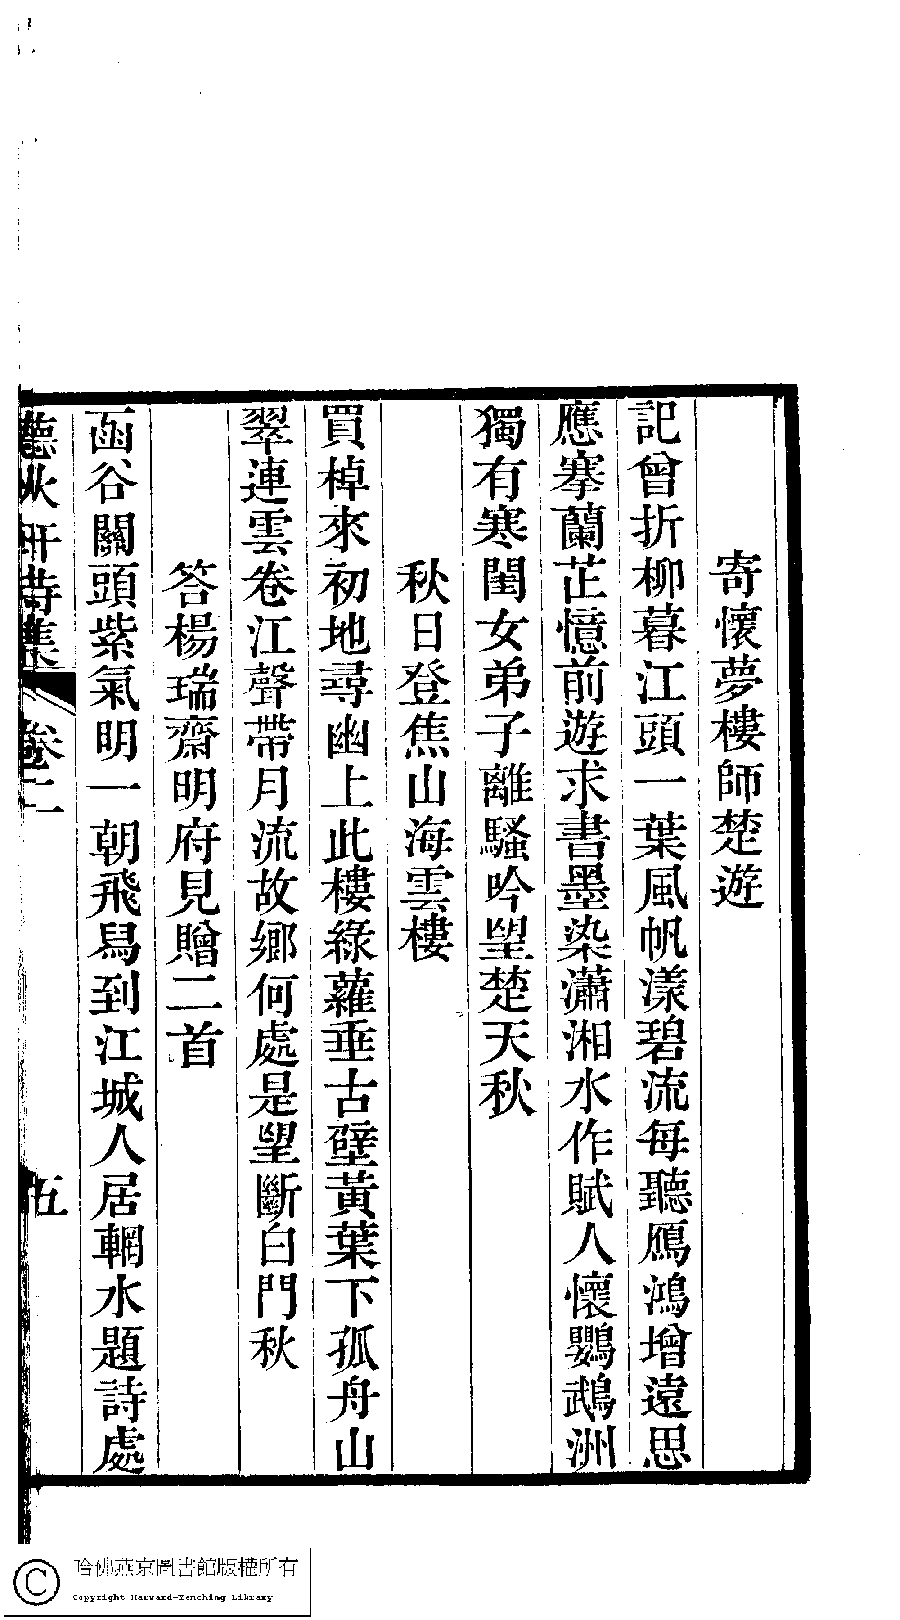 寄懷夢樓師楚遊
記曾折柳暮江頭一葉風帆漾碧流每聽鴈鴻增遠思
應搴蘭芷憶前遊求書墨染瀟湘水作賦人懷鸚鵡洲
獨有寒閨女弟子離騷吟望楚天秋
秋日登焦山海雲樓
買棹來初地尋幽上此樓綠蘿垂古壁黃葉下孤舟山
翠連雲卷江聲帶月流故鄉何處是望斷白門秋
答楊瑞齋明府見贈二首
函谷關頭紫氣明一朝飛舄到江城人居輞水題詩處
聽秋軒詩集 卷二 五
哈佛燕京圖書館版權所有
Copyright Harvard-Yenching Library